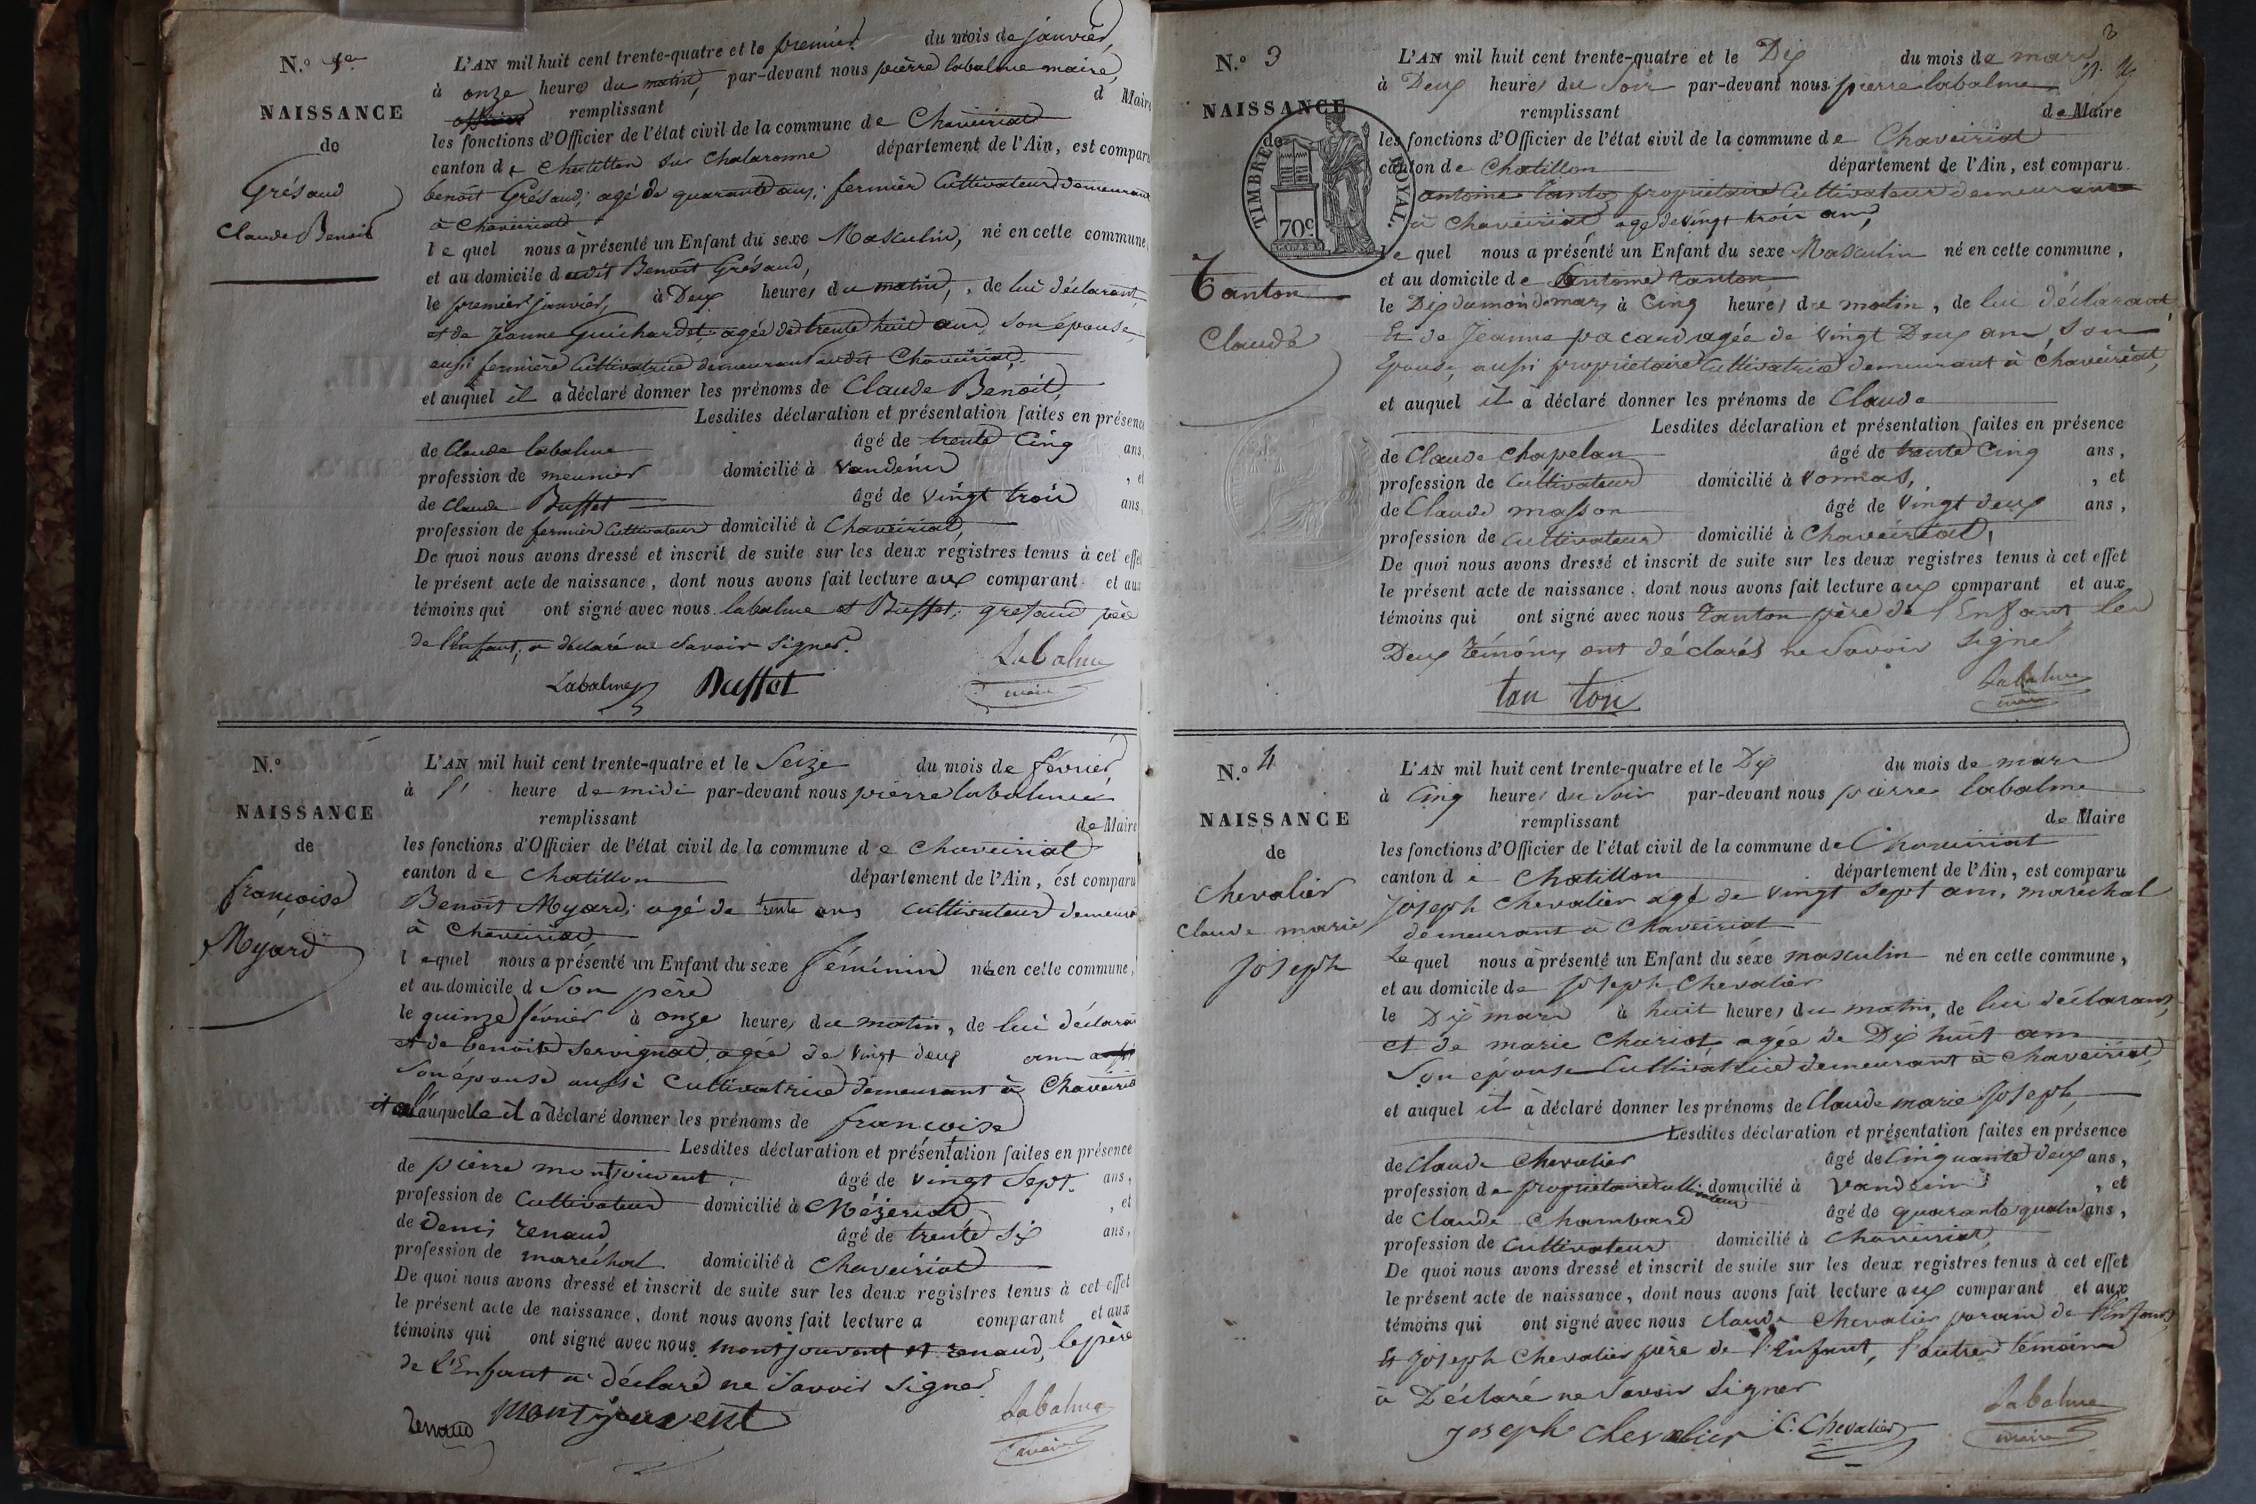 N.o 1er
NAISSANCE
de
Grésaud
Claude Benoit
L'AN mil huit cent trente-quatre et le premier du mois de janvier,
à onze heures du matin, par-devant nous pierre labalme maire,
remplissant d Maire
les fonctions d'Officier de l'état civil de la commune de Chaveiriat
canton de Chatillon sur Chalaronne département de l'Ain, est comparu
benoit Grésaud, agé de quarante ans, fermier Cultivateur demeurant
à Chaveiriat
lequel nous à présenté un Enfant du sexe Masculin, né en cette commune,
et au domicile dudit Benoit Grésaud,
le premier janvier, à Deux heures du matin, de lui déclarant,
et de Jeanne Guichardet agée de trente huit ans, son épouse,
aussi fermière Cultivatrice demeurant audit Chaveiriat,
et auquel il à déclaré donner les prénoms de Claude Benoit,
Lesdites déclaration et présentation faites en présence
de Claude labalme âgé de trente Cinq ans,
profession de meunier domicilié à Vandeins , et
de Claude Buffet âgé de vingt trois ans,
profession de fermier Cultivateur domicilié à Chaveiriat,
De quoi nous avons dressé et inscrit de suite sur les deux registres tenus à cet effet
le présent acte de naissance, dont nous avons fait lecture aux comparant et aux
témoins qui ont signé avec nous labalme et Buffet, gresaud père
de l'Enfant, a déclaré ne Savoir Signer.
Labalme Buffet Labalme
maire
N.o
NAISSANCE
de
françoise
Myard
L'AN mil huit cent trente-quatre et le Seize du mois de février,
à heure de midi par-devant nous pierre labalme
remplissant de Maire
les fonctions d'Officier de l'état civil de la commune de Chaveiriat
canton de Chatillon département de l'Ain, est comparu
Benoit Myard, agé de trente ans Cultivateur demeurant
à Chaveiriat
lequel nous a présenté un Enfant du sexe féminin née en cette commune,
et au domicile d Son père
le quinze février à onze heures du matin, de lui déclarant
et de benoite Servignat, agée de vingt deux ans
Son épouse aussi Cultivatrice demeurant à Chaveiriat
et a l'auquelle il à déclaré donner les prénoms de françoise
Lesdites déclaration et présentation faites en présence
de pierre montjouvent, âgé de vingt Sept ans,
profession de Cultivateur domicilié à Mézeriat , et
de Denis renaud âgé de trente Six ans,
profession de maréchal domicilié à Chaveiriat
De quoi nous avons dressé et inscrit de suite sur les deux registres tenus à cet effet
le présent acte de naissance, dont nous avons fait lecture a comparant et aux
témoins qui ont signé avec nous montjouvent et renaud, le père
de l'Enfant a déclaré ne Savoir Signer
renaud montjouvent Labalme
maire
N.o 3
NAISSANCE
de
TIMBRE ROYAL.
70c
Tanton
Claude
L'AN mil huit cent trente-quatre et le Dix du mois de mars
à Deux heures du Soir par-devant nous pierre labalme
remplissant de Maire
les fonctions d'Officier de l'état civil de la commune de Chaveiriat
canton de Chatillon département de l'Ain, est comparu
antoine Tanton propriétaire Cultivateur demeurant
à Chaveiriat agé de vingt trois ans,
Lequel nous a présenté un Enfant du sexe Masculin né en cette commune,
et au domicile de Antoine tanton
le Dix du mois de mars à Cinq heures du matin, de lui déclarant,
Et de Jeanne pacaud agée de vingt Deux ans, Son
Epouse, aussi propriétaire Cultivatrice demeurant à Chaveiriat,
et auquel il à déclaré donner les prénoms de Claude
Lesdites déclaration et présentation faites en présence
de Claude Chapelan âgé de trente Cinq ans,
profession de Cultivateur domicilié à Vonnas, , et
de Claude masson âgé de vingt deux ans,
profession de Cultivateur domicilié à Chaveiriat,
De quoi nous avons dressé et inscrit de suite sur les deux registres tenus à cet effet
le présent acte de naissance, dont nous avons fait lecture aux comparant et aux
témoins qui ont signé avec nous tanton père de l'Enfant, les
Deux témoins ont déclarés ne Savoir Signer
tan ton Labalme
maire
N.o 4
NAISSANCE
de
Chevalier
Claude marie
Joseph
L'AN mil huit cent trente-quatre et le Dix du mois de mars
à Cinq heures du Soir par-devant nous pierre labalme
remplissant de Maire
les fonctions d'Officier de l'état civil de la commune de Chaveiriat
canton de Chatillon département de l'Ain, est comparu
Joseph Chevalier agé de vingt Sept ans, maréchal
demeurant à Chaveiriat
Lequel nous à présenté un Enfant du sexe masculin né en cette commune,
et au domicile de Joseph Chevalier
le Dix mars à huit heures du matin, de lui déclarant,
et de marie Chariot agée de Dix huit ans
Son épouse Cultivatrice demeurant à Chaveiriat,
et auquel il à déclaré donner les prénoms de Claude marie Joseph,
Lesdites déclaration et présentation faites en présence
de Claude Chevalier âgé de Cinquante deux ans,
profession de propriétaire Cultivateur domicilié à Vandeins , et
de Claude Chambard âgé de quarante quatre ans,
profession de Cultivateur domicilié à Chaveiriat,
De quoi nous avons dressé et inscrit de suite sur les deux registres tenus à cet effet
le présent acte de naissance, dont nous avons fait lecture aux comparant et aux
témoins qui ont signé avec nous Claude Chevalier parain de l'Enfant,
Et Joseph Chevalier père de l'Enfant, l'autre témoin
à Déclaré ne Savoir Signer
Joseph Chevalier C. Chevalier Labalme
maire